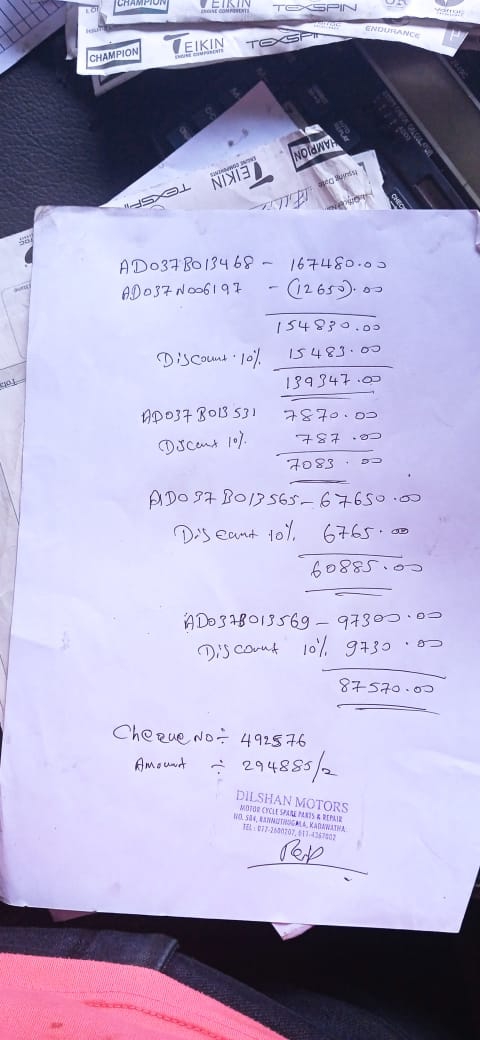 CHAMPION
TEIKIN
ENGINE COMPONENTS
TEXSPIN
CHAMPION
TEIKIN
ENGINE COMPONENTS
TEXSPIN
ENDURANCE
CHAMPION
TEIKIN
ENGINE COMPONENTS
TEXSPIN
Issuing Date
AD037B013468 - 167480.00
AD037N006197 - (12650).00
154830.00
Discount 10% 15483.00
139347.00
AD037B013531 7870.00
Discount 10% 787.00
7083.00
AD037B013565 - 67650.00
Discount 10% 6765.00
60885.00
AD037B013569 - 97300.00
Discount 10% 9730.00
87570.00
Cheque No ÷ 492576
Amount ÷ 294885/2
DILSHAN MOTORS
MOTOR CYCLE SPARE PARTS & REPAIR
NO. 504, RANMUTHUGALA, KADAWATHA.
TEL : 077-2600207, 011-4367002